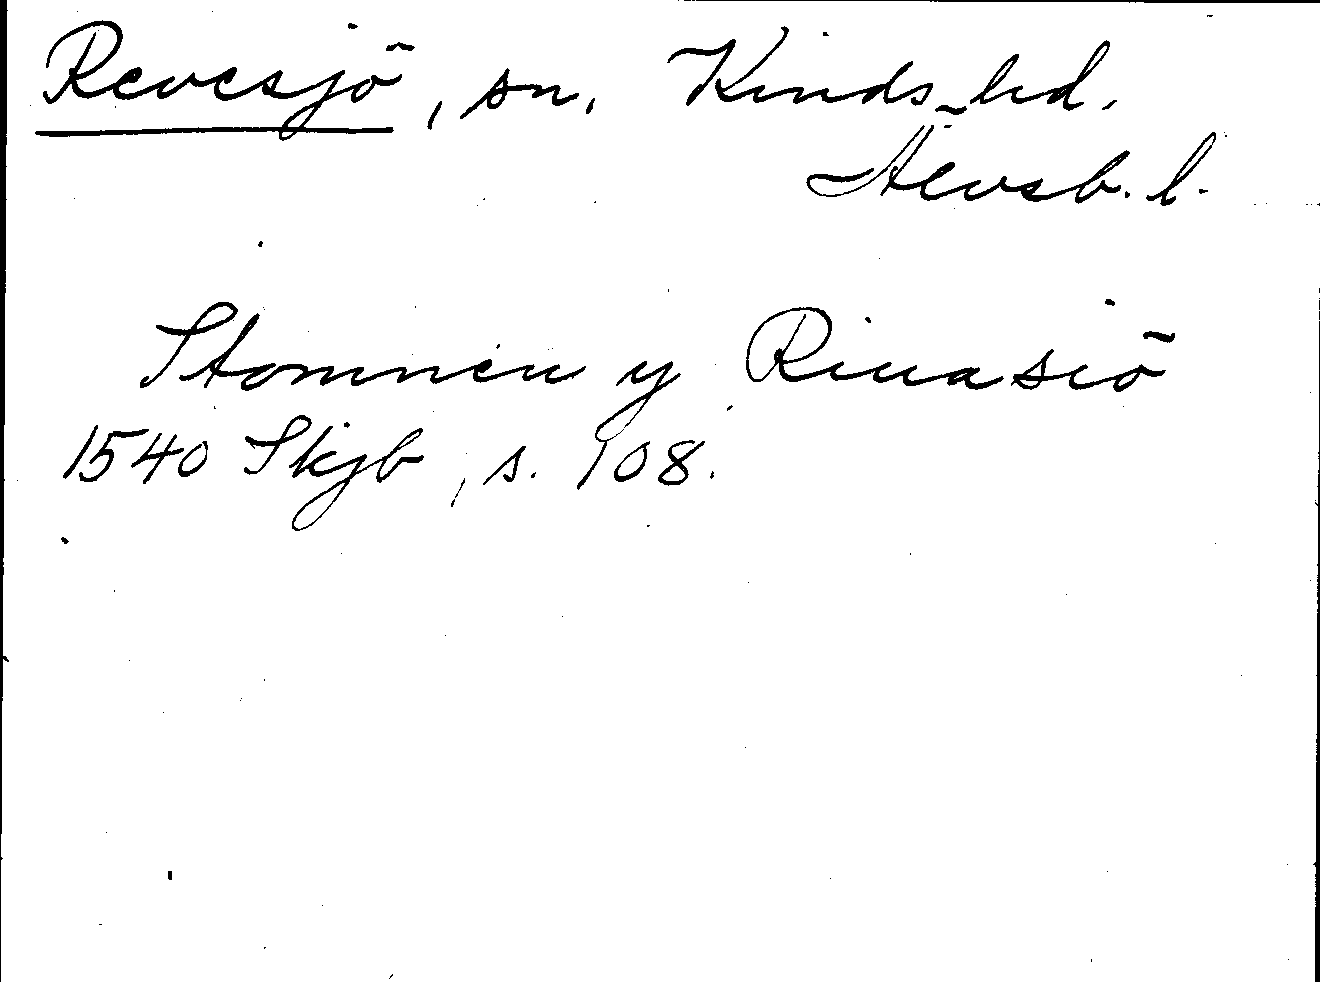 Revesjö, sn. Kinds hd.
Älvsb. l.
Stommen y Riuasiö
1540 Skjb, s. 108.